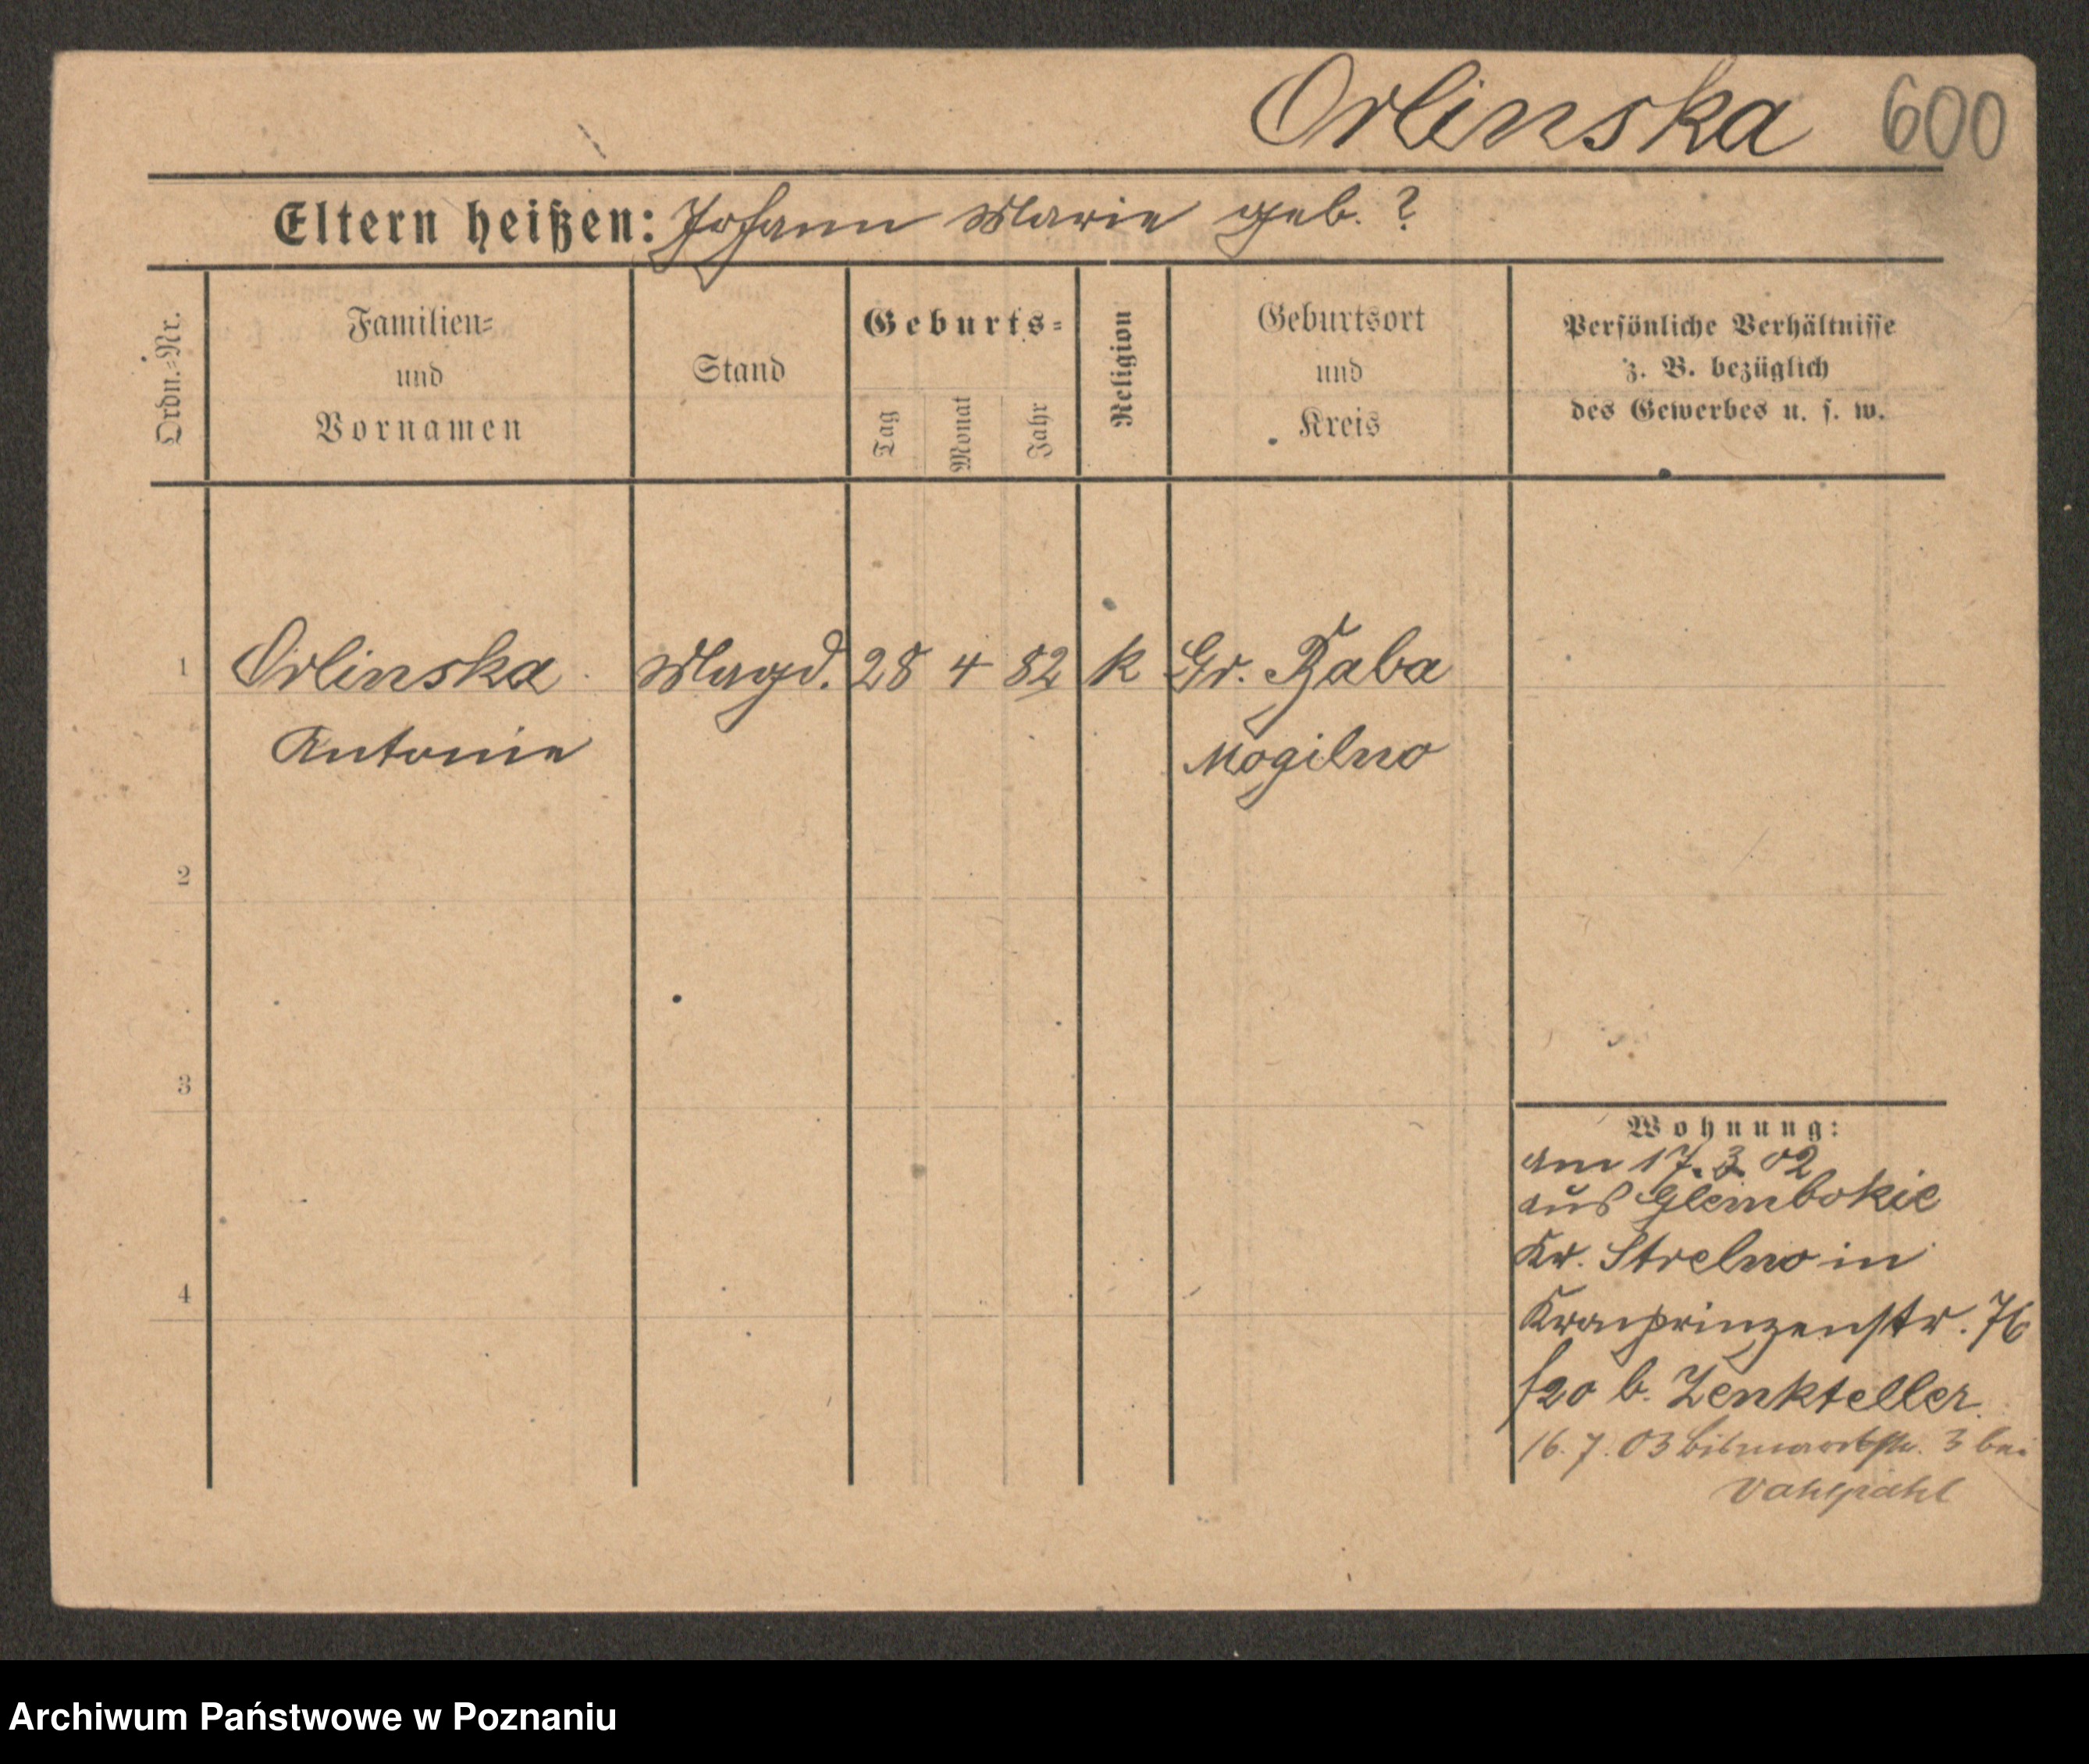 Orlinska 600
Eltern heißen: Johann Marie geb. ?
Ordn.=Nr.
Familien=
und
Vornamen
Stand
Geburts=
Tag
Monat
Jahr
Religion
Geburtsort
und
Kreis
Persönliche Verhältnisse
z. B. bezüglich
des Gewerbes u. s. w.
1 Orlinska Magd. 28 4 82 k Gr.
Antonie Mogilno
2
3
4
Wohnung:
am 17. 3. 02
aus Glembokie
Kr. Strelno in
Kronprinzenstr. 76
b. Zenkteller.
16. 7. 03 Bismarckstr. 3 bei
Archiwum Państwowe w Poznaniu